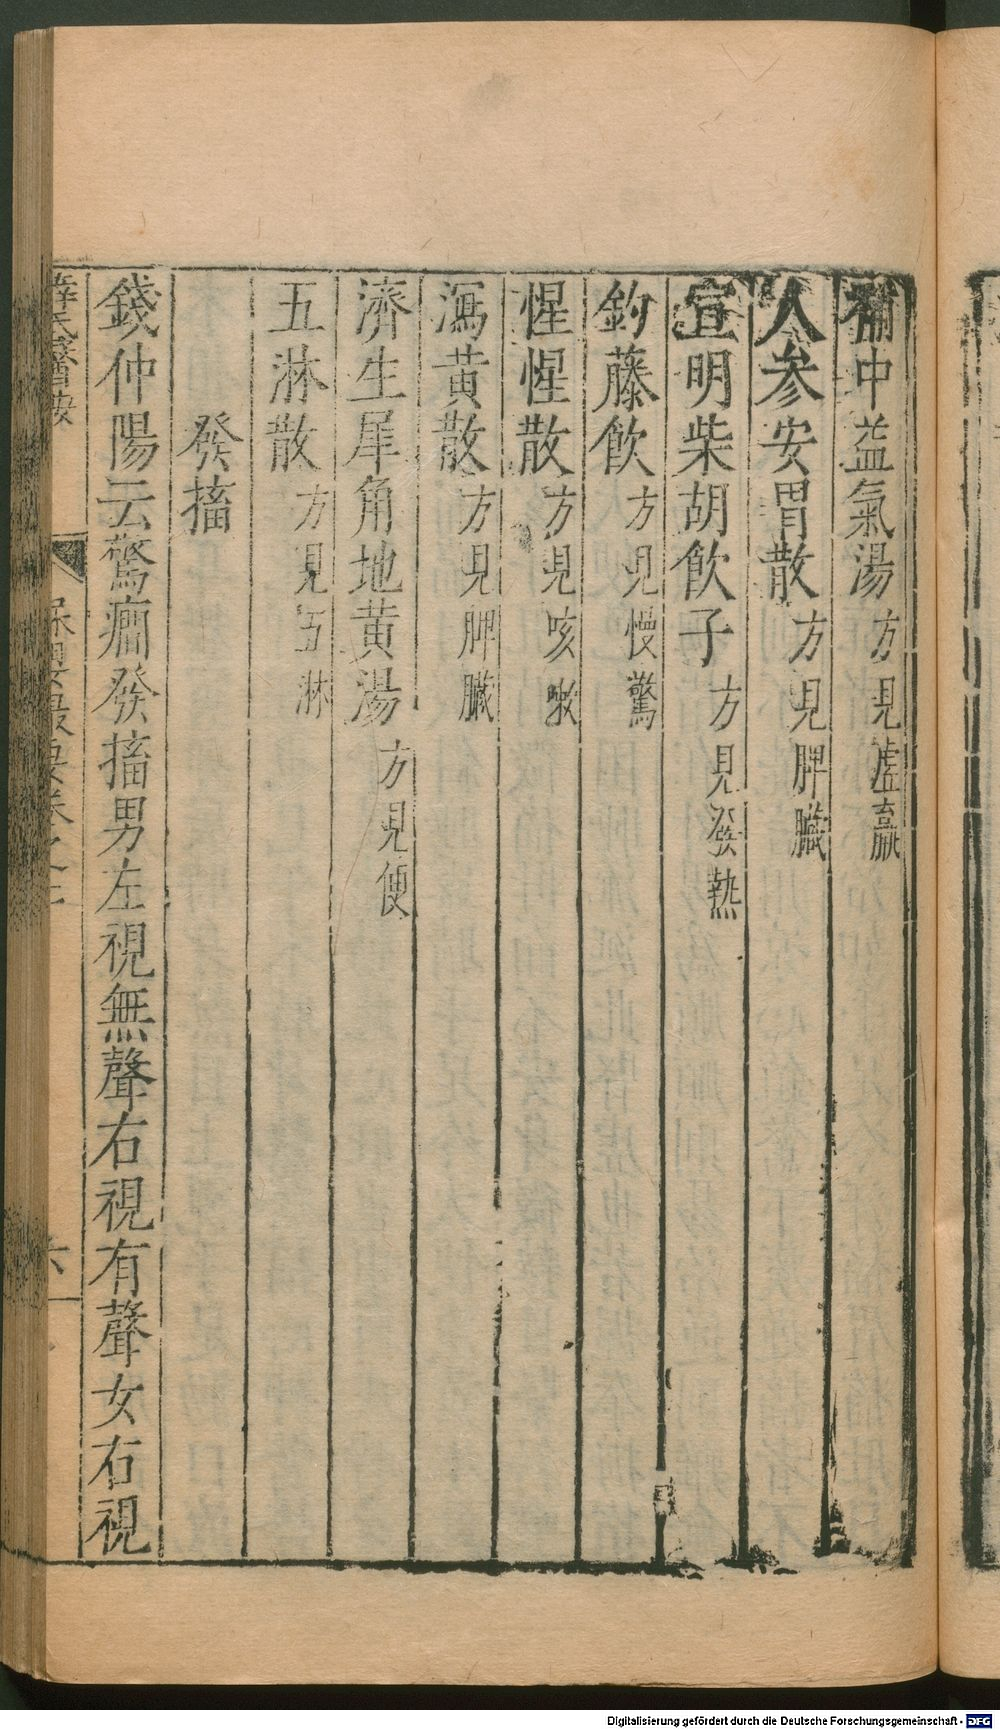 補中益氣湯方見虛羸
人参安胃散方見脾臟
宣明柴胡飲子方見發熱
釣藤飲方見慢驚
惺惺散方見咳嗽
瀉黃散方見脾臟
濟生犀角地黃湯方見便
五淋散方見五淋
發搐
錢仲陽云驚癎發搐男左視無聲右視有聲女右視
薛氏醫按 保嬰撮要卷之 六
Digitalisierung gefördert durch die Deutsche Forschungsgemeinschaft - DFG